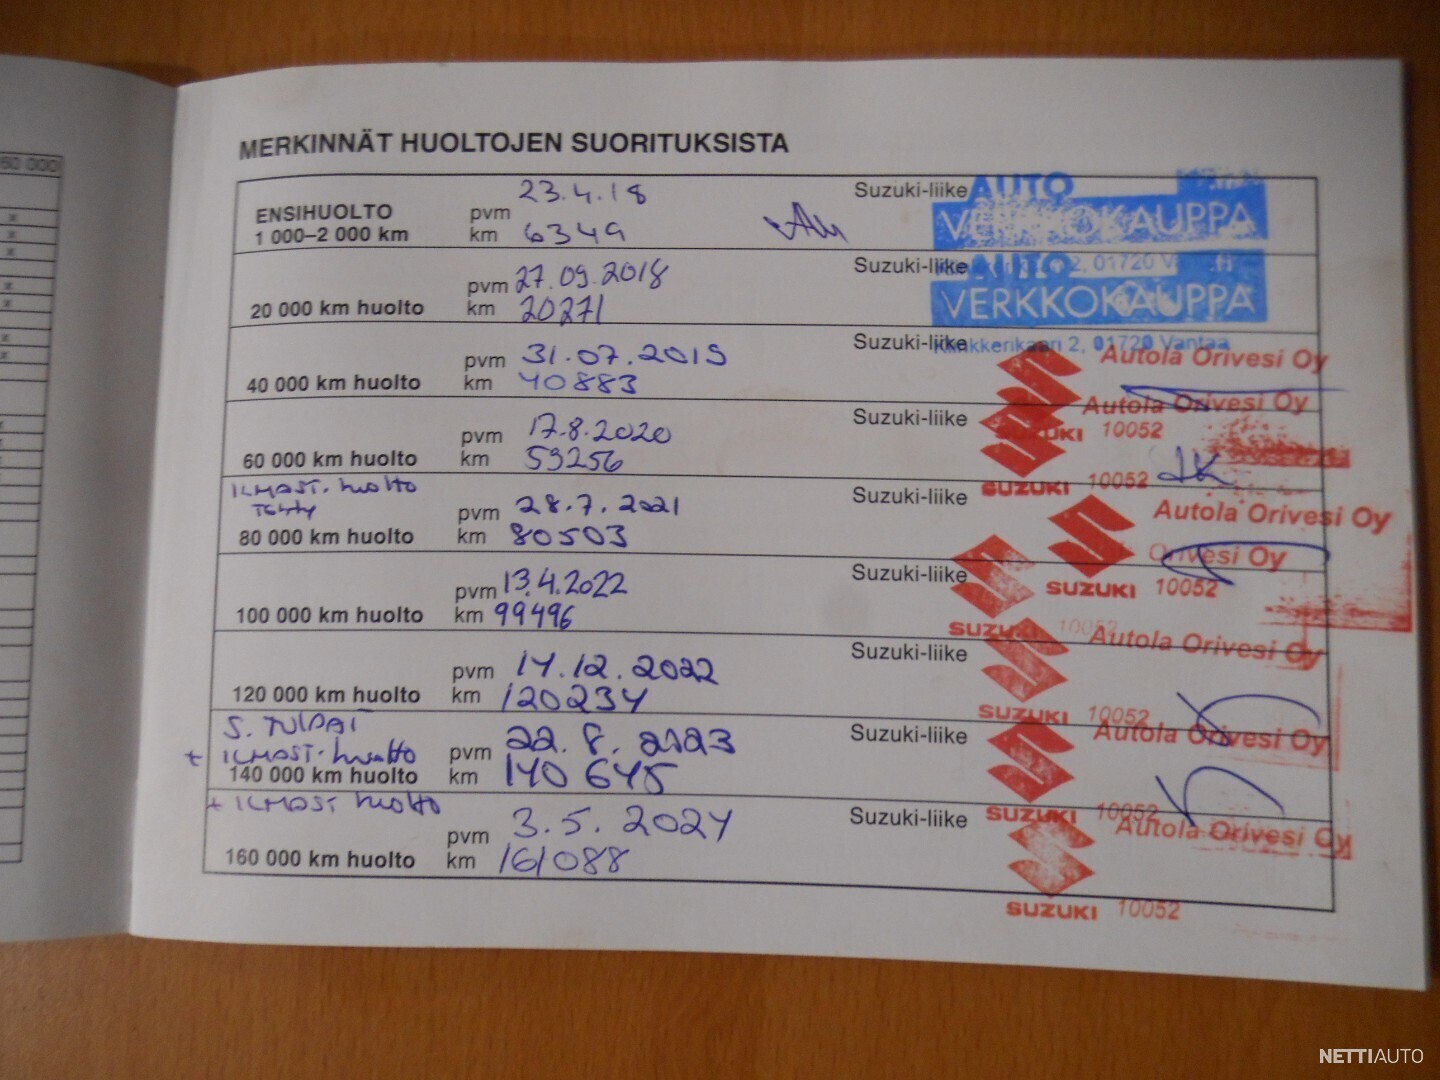 60 000
MERKINNÄT HUOLTOJEN SUORITUKSISTA
ENSIHUOLTO
1 000–2 000 km
pvm 23.4.18
km 6349
Suzuki-liike
AUTO
VERKKOKAUPPA
2, 01720
20 000 km huolto
pvm 27.09.2018
km 20271
Suzuki-liike
AUTO
VERKKOKAUPPA
Klinkkerikaari 2, 01720 Vantaa
40 000 km huolto
pvm 31.07.2019
km 40883
Suzuki-liike
Autola Orivesi Oy
SUZUKI 10052
60 000 km huolto
pvm 17.8.2020
km 59256
Suzuki-liike
Autola Orivesi Oy
SUZUKI 10052
JK
ILMAST. huolto
80 000 km huolto
pvm 28.7.2021
km 80503
Suzuki-liike
Autola Orivesi Oy
SUZUKI 10052
100 000 km huolto
pvm 13.4.2022
km 99496
Suzuki-liike
Orivesi Oy
SUZUKI 10052
120 000 km huolto
pvm 14.12.2022
km 120234
Suzuki-liike
Autola Orivesi Oy
SUZUKI 10052
+ ILMAST. huolto
140 000 km huolto
pvm 22.8.2023
km 140 645
Suzuki-liike
Autola Orivesi Oy
SUZUKI 10052
+ ILMAST huolto
160 000 km huolto
pvm 3.5.2024
km 161088
Suzuki-liike
Autola Orivesi Oy
SUZUKI 10052
NETTIAUTO